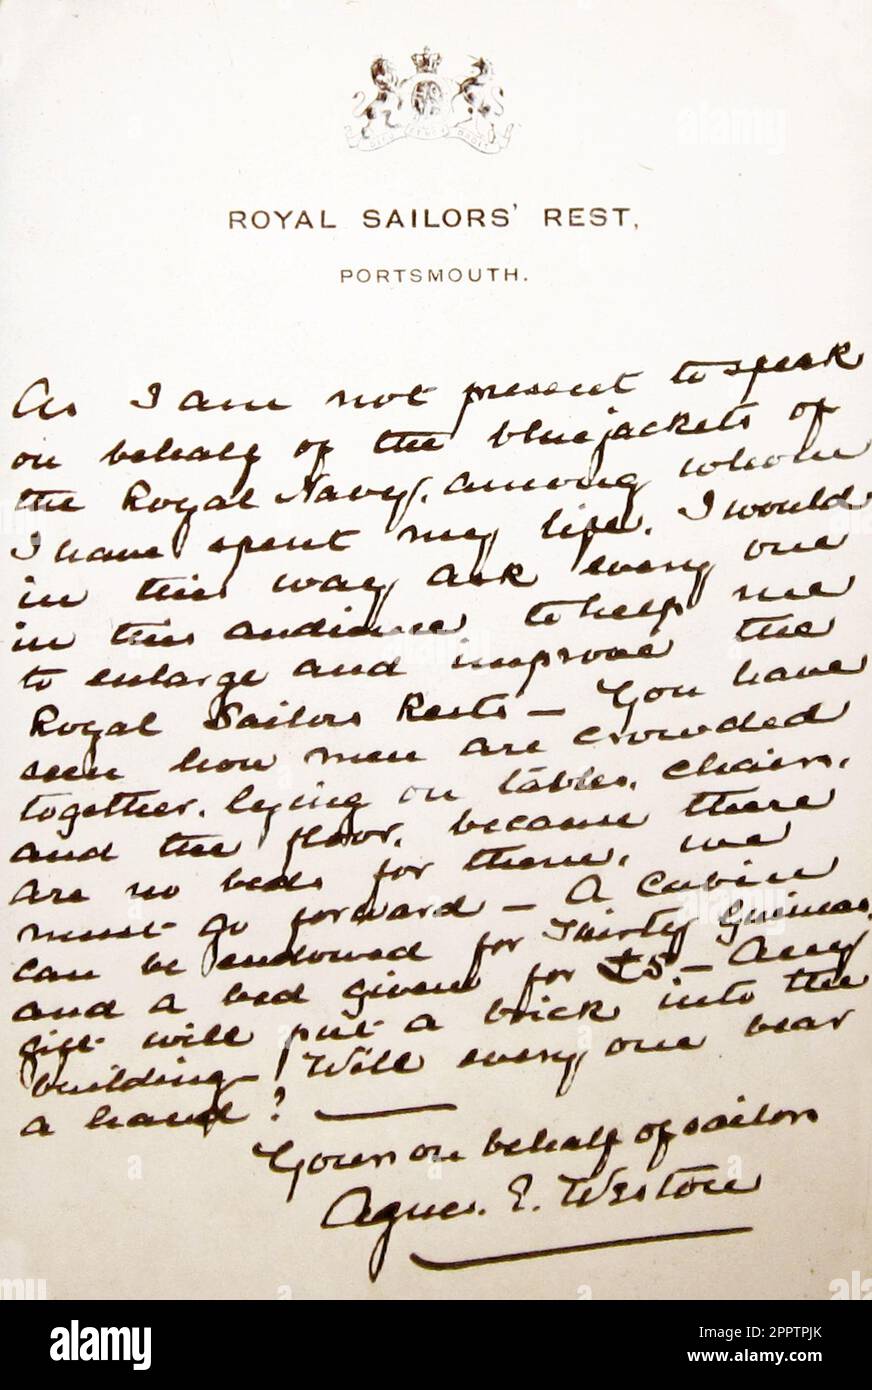 ROYAL SAILORS' REST,
PORTSMOUTH.
As I am not present to speak
on behalf of the bluejackets of
the Royal Navy, among whom
I have spent my life. I would
in this way ask every one
in this audience to help me
to enlarge and improve the
Royal Sailors Rests — You have
seen how men are crowded
together, lying on tables, chairs,
and the floor, because there
are no beds for them, we
must go forward — A Cabin
can be endowed for Thirty Guineas,
and a bed given for £5 — Any
gift will put a brick into the
building — Will every one bear
a hand? —
Yours on behalf of sailors
Agnes. E. Weston
alamy
Image ID: 2PPTPJK
www.alamy.com